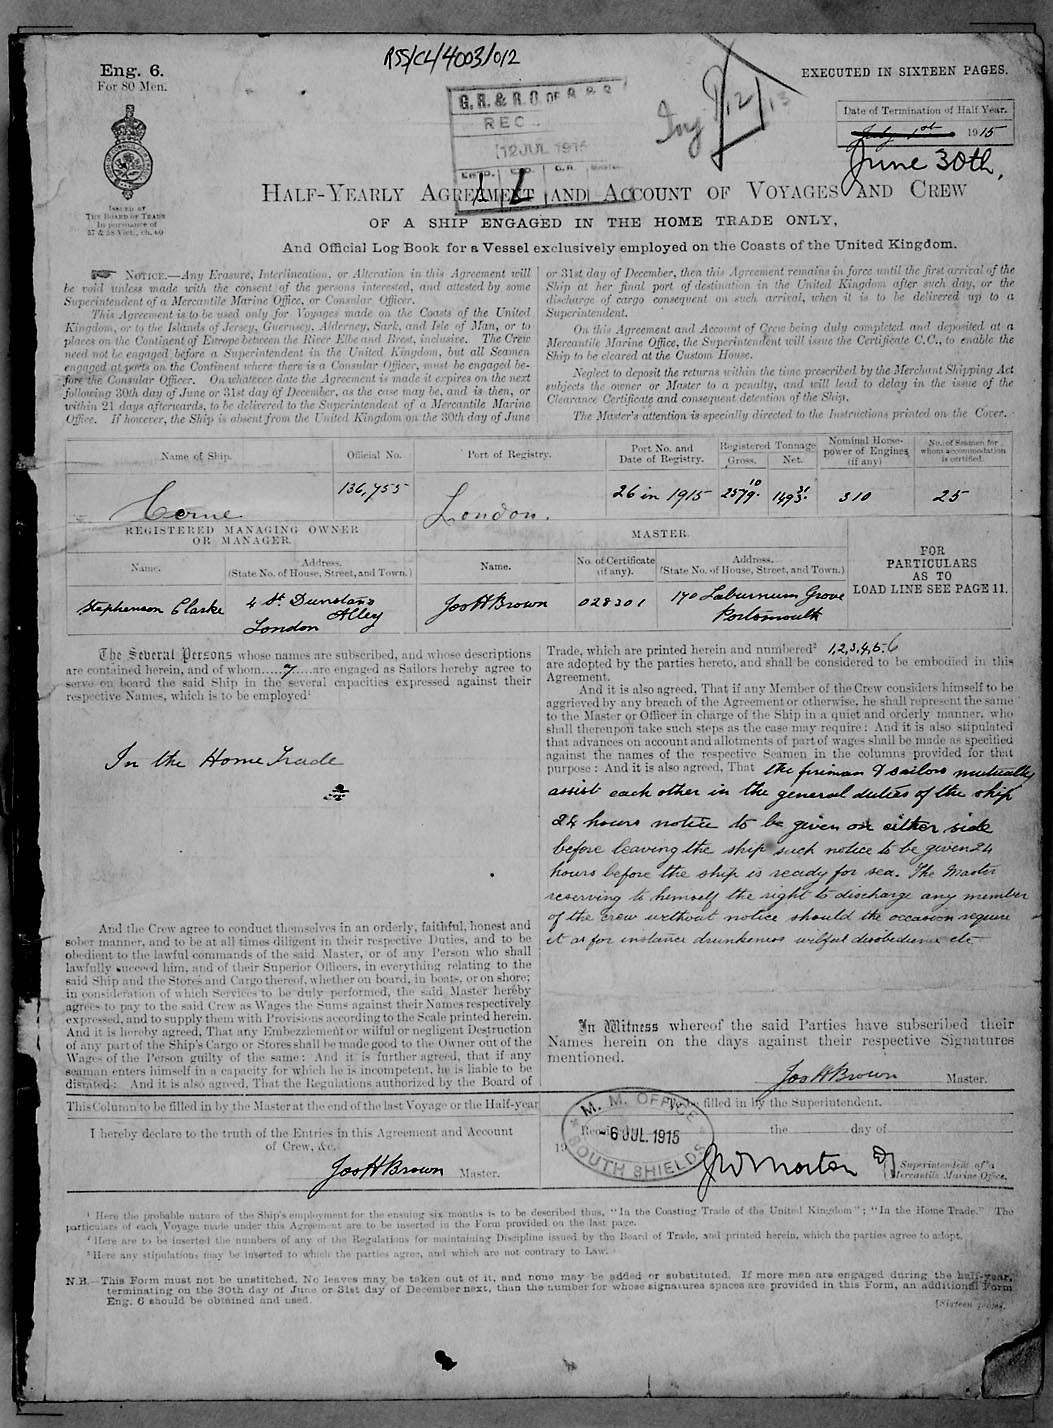 RSS/CL/4003/012
Eng. 6.
For 80 Men.
EXECUTED IN SIXTEEN PAGES.
G.R. & R.O. OF
REC
12 JUL 1915
Date of Termination of Half Year.
July 1st 1915
June 30th,
ISSUED BY
THE BOARD OF TRADE
In pursuance of
57 & 58 Vict., ch. 60
HALF-YEARLY AGREEMENT AND ACCOUNT OF VOYAGES AND CREW
OF A SHIP ENGAGED IN THE HOME TRADE ONLY,
And Official Log Book for a Vessel exclusively employed on the Coasts of the United Kingdom.
NOTICE.—Any Erasure, Interlineation, or Alteration in this Agreement will
be void unless made with the consent of the persons interested, and attested by some
Superintendent of a Mercantile Marine Office, or Consular Officer.
This Agreement is to be used only for Voyages made on the Coasts of the United
Kingdom, or to the Islands of Jersey, Guernsey, Alderney, Sark, and Isle of Man, or to
places on the Continent of Europe between the River Elbe and Brest, inclusive. The Crew
need not be engaged before a Superintendent in the United Kingdom, but all Seamen
engaged at ports on the Continent where there is a Consular Officer, must be engaged be-
fore the Consular Officer. On whatever date the Agreement is made it expires on the next
following 30th day of June or 31st day of December, as the case may be, and is then, or
within 21 days afterwards, to be delivered to the Superintendent of a Mercantile Marine
Office. If however, the Ship is absent from the United Kingdom on the 30th day of June
or 31st day of December, then this Agreement remains in force until the first arrival of the
Ship at her final port of destination in the United Kingdom after such day, or the
discharge of cargo consequent on such arrival, when it is to be delivered up to a
Superintendent.
On this Agreement and Account of Crew being duly completed and deposited at a
Mercantile Marine Office, the Superintendent will issue the Certificate C.C., to enable the
Ship to be cleared at the Custom House.
Neglect to deposit the returns within the time prescribed by the Merchant Shipping Act
subjects the owner or Master to a penalty, and will lead to delay in the issue of the
Clearance Certificate and consequent detention of the Ship.
The Master's attention is specially directed to the Instructions printed on the Cover.
Name of Ship. Official No. Port of Registry. Port No. and Date of Registry. Registered Tonnage Gross. Net. Nominal Horse-power of Engines (if any) No. of Seamen for whom accommodation is certified.
Cerne 136,755 London. 26 in 1915 2579.10 1493.31 310 25
REGISTERED MANAGING OWNER OR MANAGER. MASTER.
Name. Address. (State No. of House, Street, and Town.) Name. No. of Certificate (if any). Address. (State No. of House, Street, and Town.)
FOR PARTICULARS AS TO LOAD LINE SEE PAGE 11.
Stephenson Clarke 4 St. Dunstans Alley London Jos H Brown 028301 170 Laburnum Grove Portsmouth
The Several Persons whose names are subscribed, and whose descriptions
are contained herein, and of whom 7 are engaged as Sailors hereby agree to
serve on board the said Ship in the several capacities expressed against their
respective Names, which is to be employed¹
In the Home Trade
And the Crew agree to conduct themselves in an orderly, faithful, honest and
sober manner, and to be at all times diligent in their respective Duties, and to be
obedient to the lawful commands of the said Master, or of any Person who shall
lawfully succeed him, and of their Superior Officers, in everything relating to the
said Ship and the Stores and Cargo thereof, whether on board, in boats, or on shore;
in consideration of which Services to be duly performed, the said Master hereby
agrees to pay to the said Crew as Wages the Sums against their Names respectively
expressed, and to supply them with Provisions according to the Scale printed herein.
And it is hereby agreed, That any Embezzlement or wilful or negligent Destruction
of any part of the Ship's Cargo or Stores shall be made good to the Owner out of the
Wages of the Person guilty of the same: And it is further agreed, that if any
seaman enters himself in a capacity for which he is incompetent, he is liable to be
disrated: And it is also agreed, That the Regulations authorized by the Board of
Trade, which are printed herein and numbered² 1,2,3,4,5-6
are adopted by the parties hereto, and shall be considered to be embodied in this
Agreement.
And it is also agreed, That if any Member of the Crew considers himself to be
aggrieved by any breach of the Agreement or otherwise, he shall represent the same
to the Master or Officer in charge of the Ship in a quiet and orderly manner, who
shall thereupon take such steps as the case may require: And it is also stipulated
that advances on account and allotments of part of wages shall be made as specified
against the names of the respective Seamen in the columns provided for that
purpose: And it is also agreed, That the fireman & sailors mutually
assist each other in the general duties of the ship
24 hours notice to be given on either side
before leaving the ship such notice to be given 24
hours before the ship is ready for sea. The Master
reserving to himself the right to discharge any member
of the crew without notice should the occasion require
it as for instance drunkeness wilful disobedience etc
In Witness whereof the said Parties have subscribed their
Names herein on the days against their respective Signatures
mentioned.
Jos H Brown Master.
This Column to be filled in by the Master at the end of the last Voyage or the Half-year
I hereby declare to the truth of the Entries in this Agreement and Account
of Crew, &c.
Jos H Brown Master.
To be filled in by the Superintendent.
Received the day of
19
M. M. OFFICE
-6 JUL 1915
SOUTH SHIELDS
J W Morton
Superintendent of a
Mercantile Marine Office.
¹ Here the probable nature of the Ship's employment for the ensuing six months is to be described thus, "In the Coasting Trade of the United Kingdom"; "In the Home Trade." The
particulars of each Voyage made under this Agreement are to be inserted in the Form provided on the last page.
² Here are to be inserted the numbers of any of the Regulations for maintaining Discipline issued by the Board of Trade, and printed herein, which the parties agree to adopt.
³ Here any stipulations may be inserted to which the parties agree, and which are not contrary to Law.
N.B.—This Form must not be unstitched. No leaves may be taken out of it, and none may be added or substituted. If more men are engaged during the half-year,
terminating on the 30th day of June or 31st day of December next, than the number for whose signatures spaces are provided in this Form, an additional Form
Eng. 6 should be obtained and used.
[Sixteen pages.